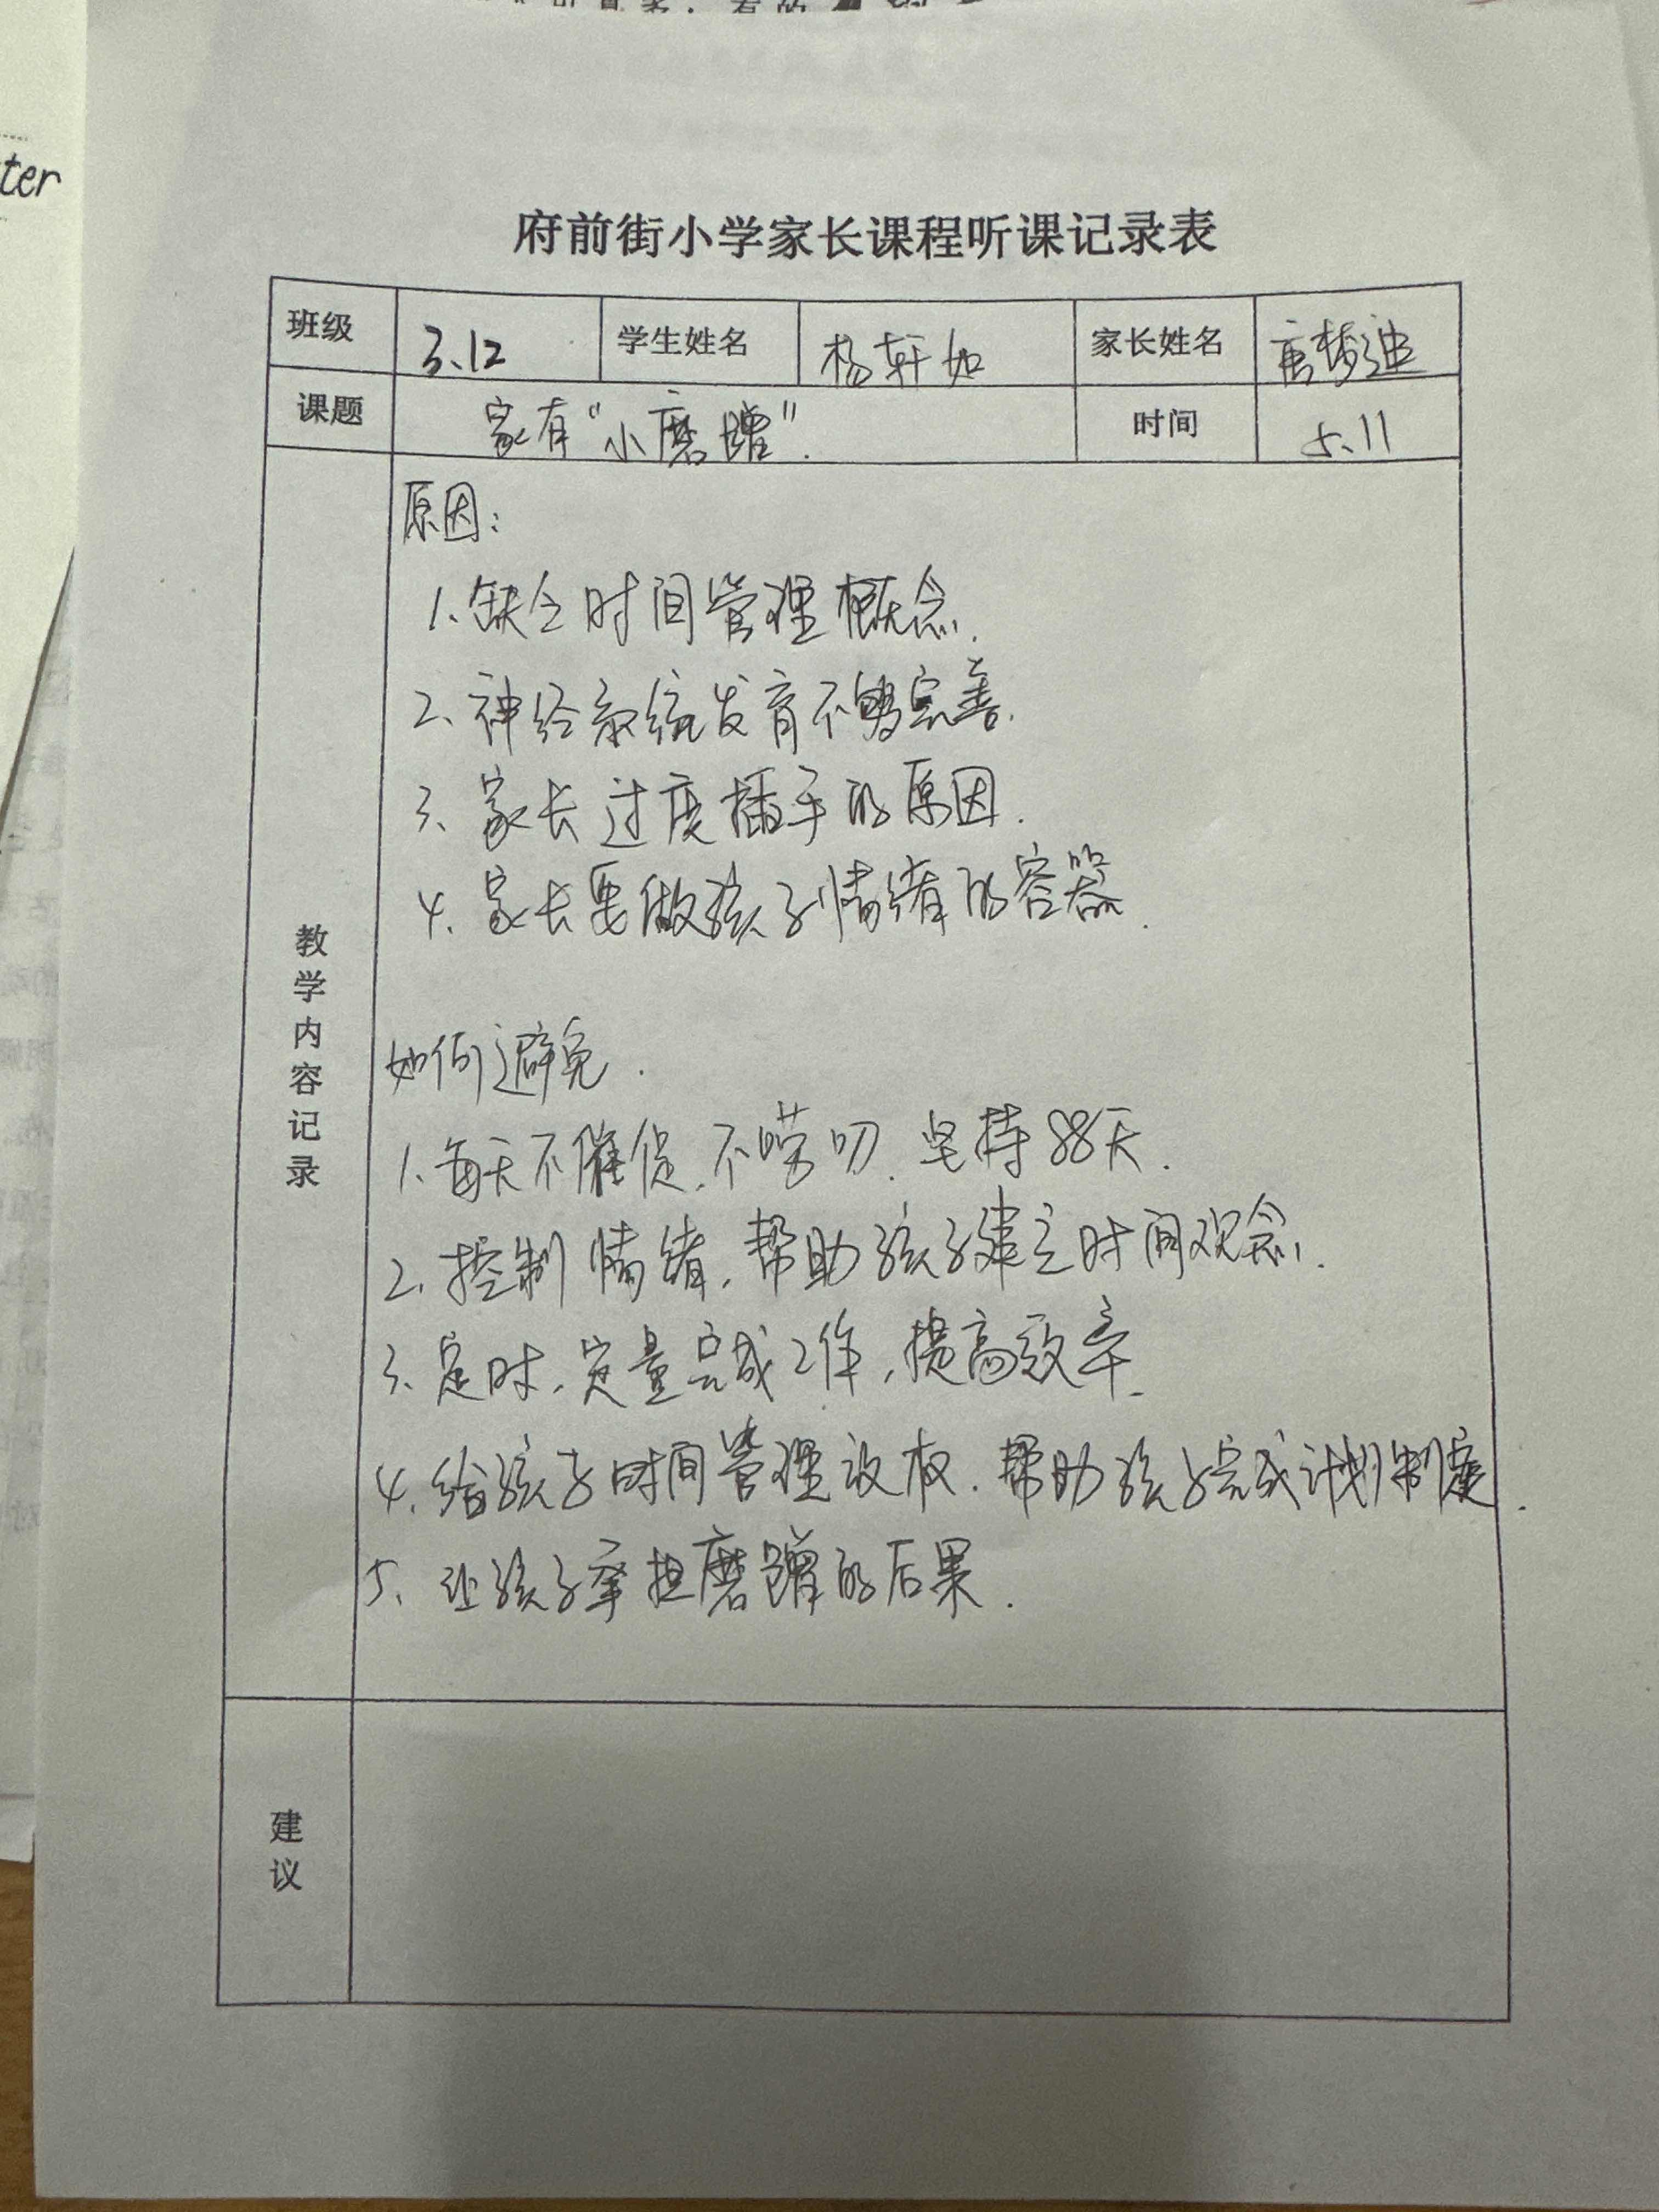 ter
府前街小学家长课程听课记录表
班级 3.12 学生姓名 杨轩如 家长姓名 唐梦迪
课题 家有“小磨蹭”. 时间 5.11
教学内容记录
原因:
1、缺乏时间管理概念.
2、神经系统发育不够完善.
3、家长过度插手的原因.
4、家长要做孩子情绪的容器.
如何避免.
1、每天不催促,不唠叨,坚持88天.
2、控制情绪,帮助孩子建立时间观念.
3、定时、定量完成工作,提高效率.
4、给孩子时间管理放权,帮助孩子完成计划制定.
5、让孩子承担磨蹭的后果.
建议